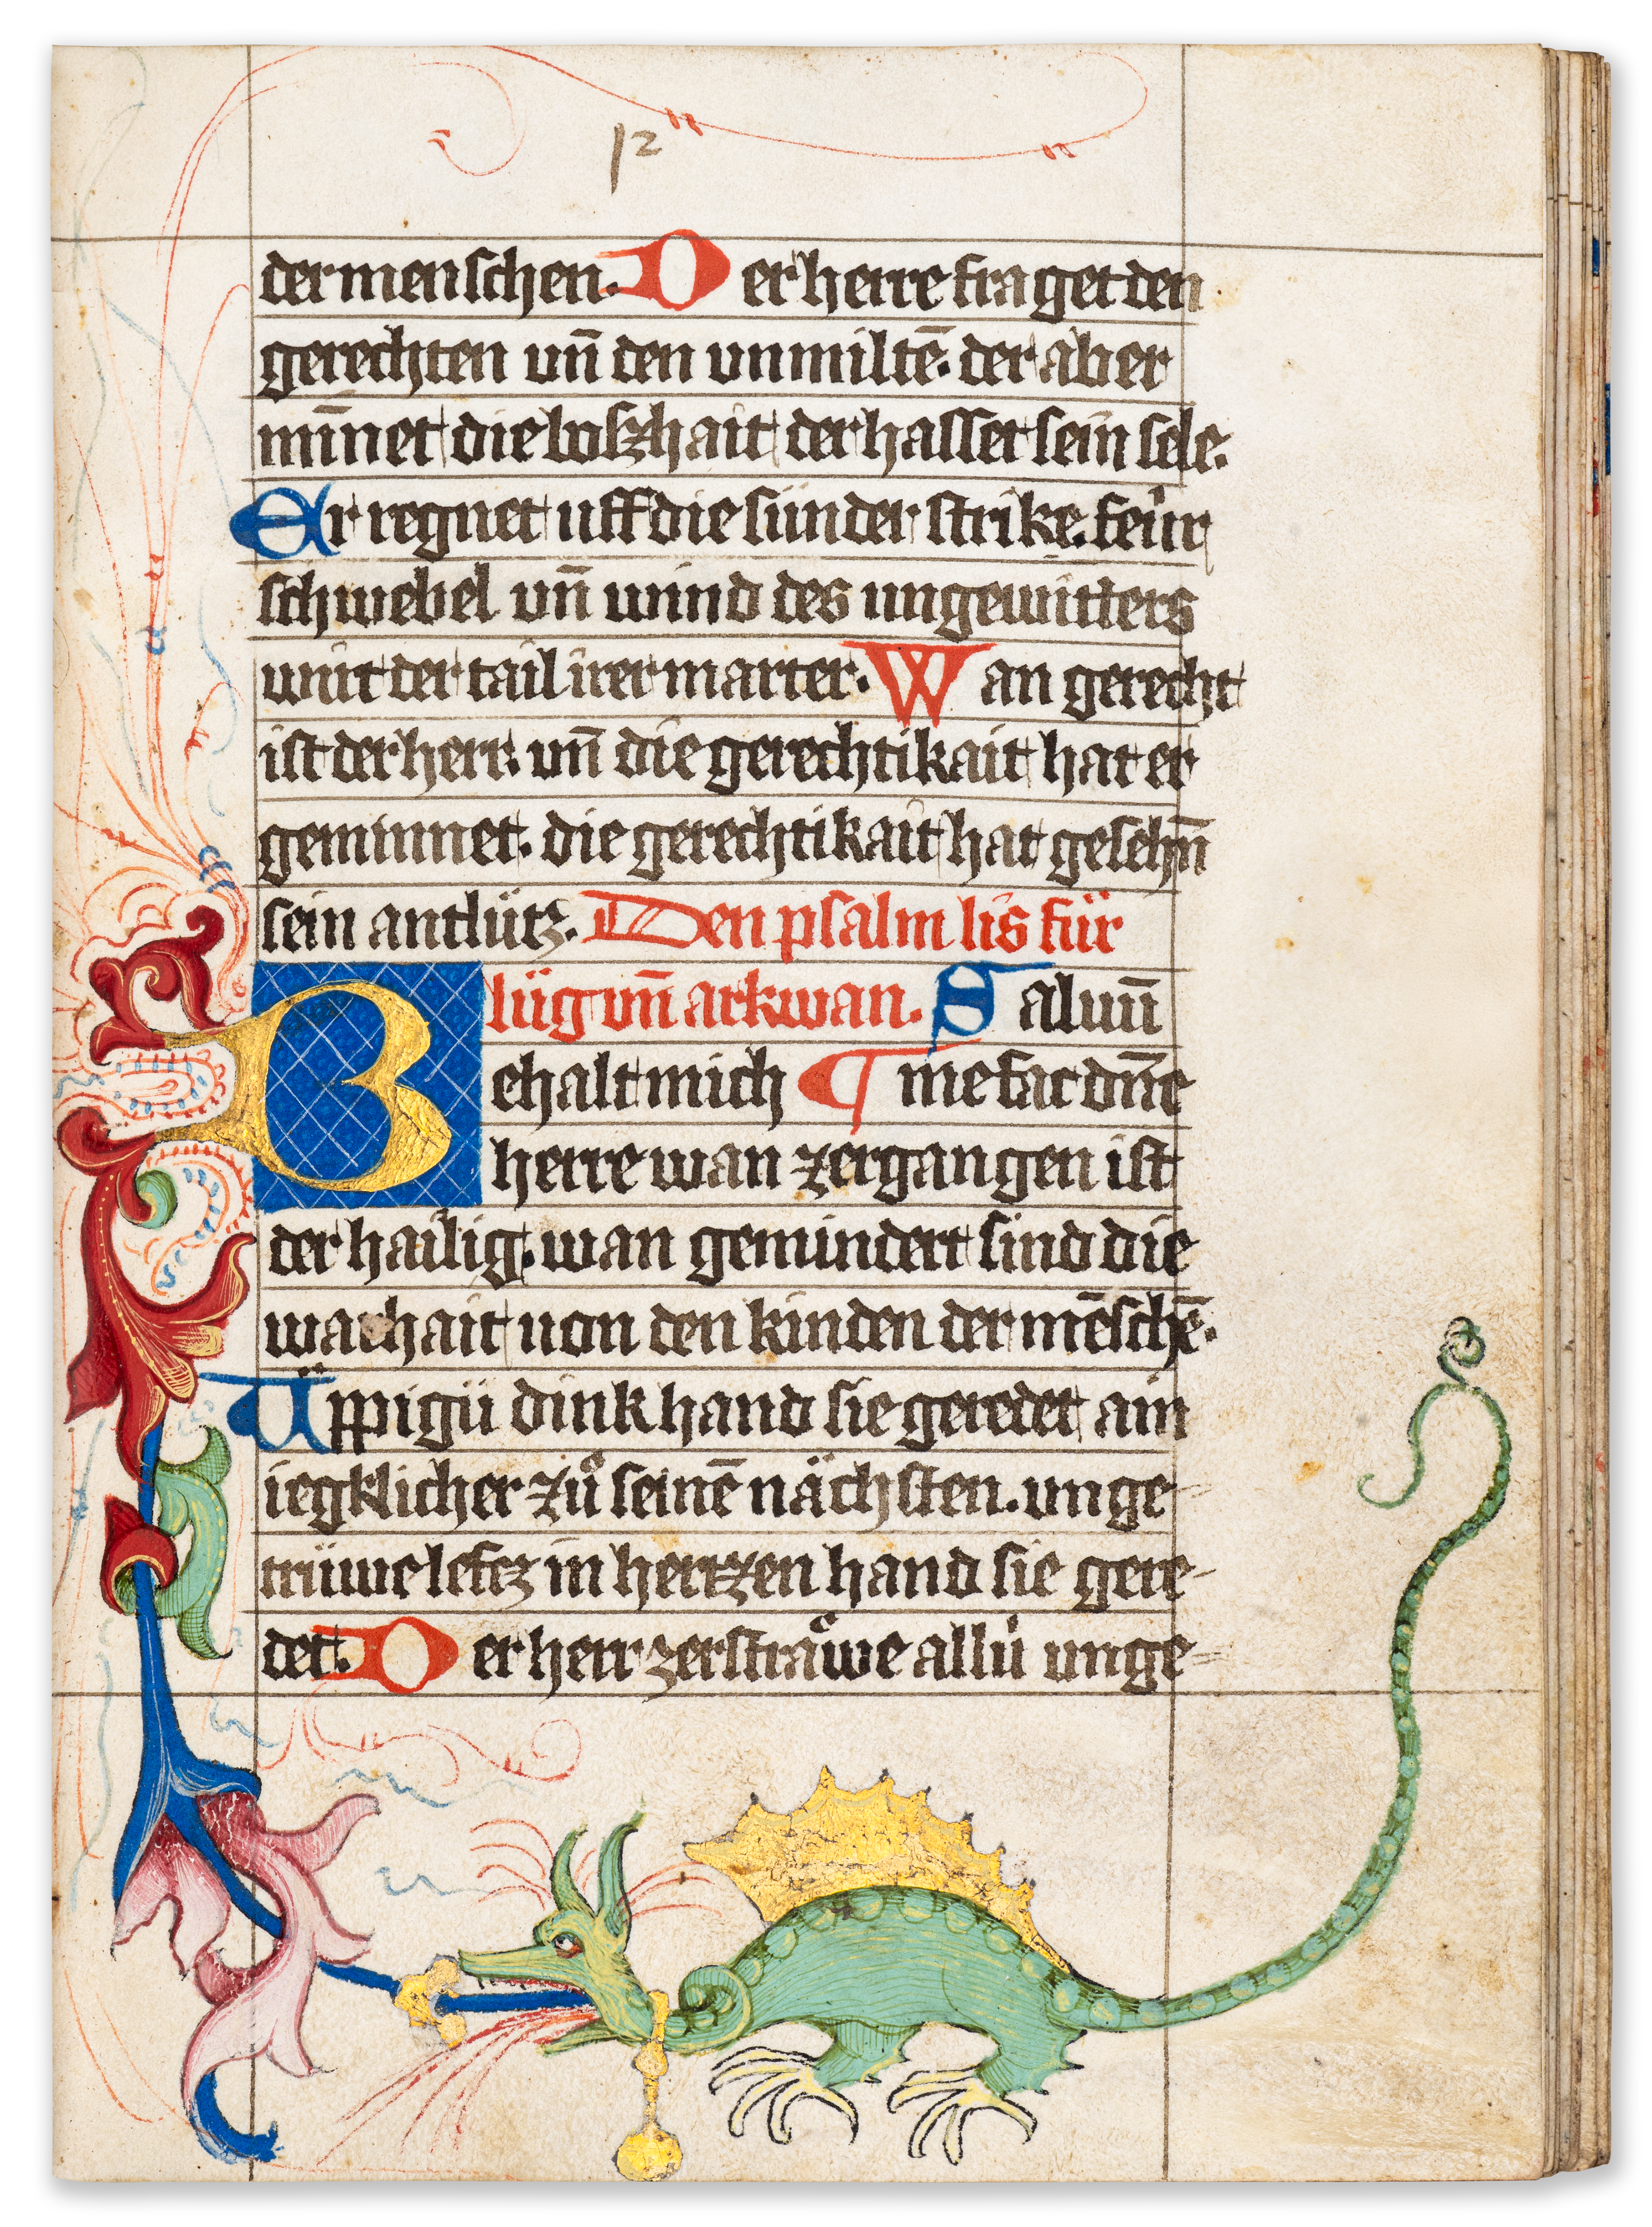 12
der menschen. Der herre fraget den
gerechten vn̄ den vnmiltē. der aber
mīnet die boszhait der hasset sein sele.
Er regnet uff die sünder strike. feür
schwebel vn̄ wind des ungewitters
wirt der tail irer marter. Wan gerecht
ist der herr. vn̄ die gerechtikait hat er
geminnet. die gerechtikait hat gesehn̄
sein antlütz. Den psalm lis für
lüg vn̄ arkwan. Saluū
Behalt mich ¶ me fac dn̄e
herre wan zergangen ist
der hailig. wan gemindert sind die
warhait uon den kinden der mēschē.
Üppigü dink hand sie geredet ain
iegklicher zuͦ seinē nächsten. unge-
trüwe lefcz in hertzen hand sie gere-
det. Der herr zerstraͤwe allü unge-